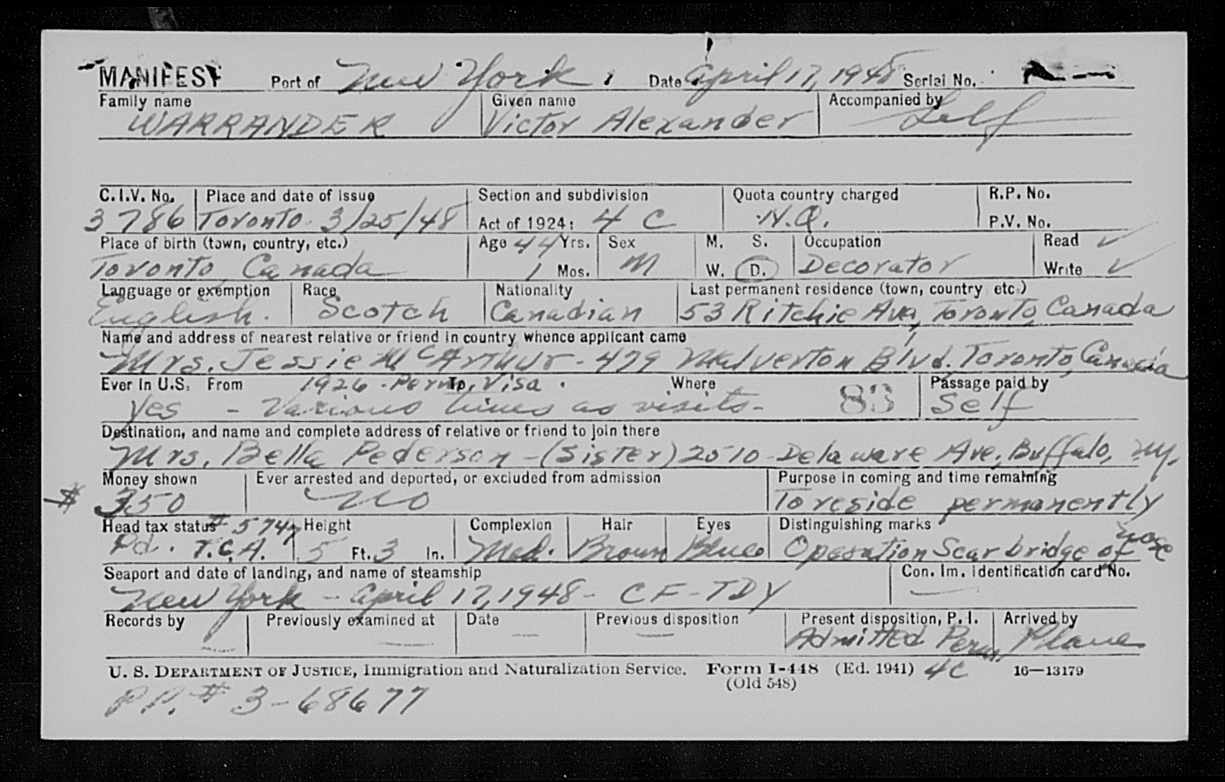 MANIFEST Port of New York, Date April 17, 1948 Serial No.
Family name Given name Accompanied by
WARRANDER Victor Alexander Self
C.I.V. No. Place and date of issue Section and subdivision Quota country charged R.P. No.
3786 Toronto 3/25/48 Act of 1924: 4 C N.Q. P.V. No.
Place of birth (town, country, etc.) Age 44 Yrs. Sex M. S. Occupation Read ✓
Toronto, Canada 1 Mos. M W. D. Decorator Write ✓
Language or exemption Race Nationality Last permanent residence (town, country etc.)
English. Scotch Canadian 53 Ritchie Ave, Toronto, Canada
Name and address of nearest relative or friend in country whence applicant came
Mrs. Jessie McArthur - 479 Malverton Blvd. Toronto, Canada
Ever in U.S. From 1926 - Perm, Visa. To Where Passage paid by
Yes - Various times as visits - 83 Self
Destination, and name and complete address of relative or friend to join there
Mrs. Bella Pederson - (Sister) 2510 - Delaware Ave, Buffalo, NY.
Money shown Ever arrested and deported, or excluded from admission Purpose in coming and time remaining
$ 350 NO To reside permanently
Head tax status # 5747 Height Complexion Hair Eyes Distinguishing marks
Pd. T.C.A. 5 Ft. 3 In. Med. Brown Blue Operation Scar bridge of nose
Seaport and date of landing, and name of steamship Con. Im. Identification card No.
New York - April 17, 1948 - CF-TDY
Records by Previously examined at Date Previous disposition Present disposition, P. I. Arrived by
Admitted Perm. Plane
U. S. DEPARTMENT OF JUSTICE, Immigration and Naturalization Service. Form I-448 (Ed. 1941) 4C 16—13179
(Old 548)
P.P. # 3-68677